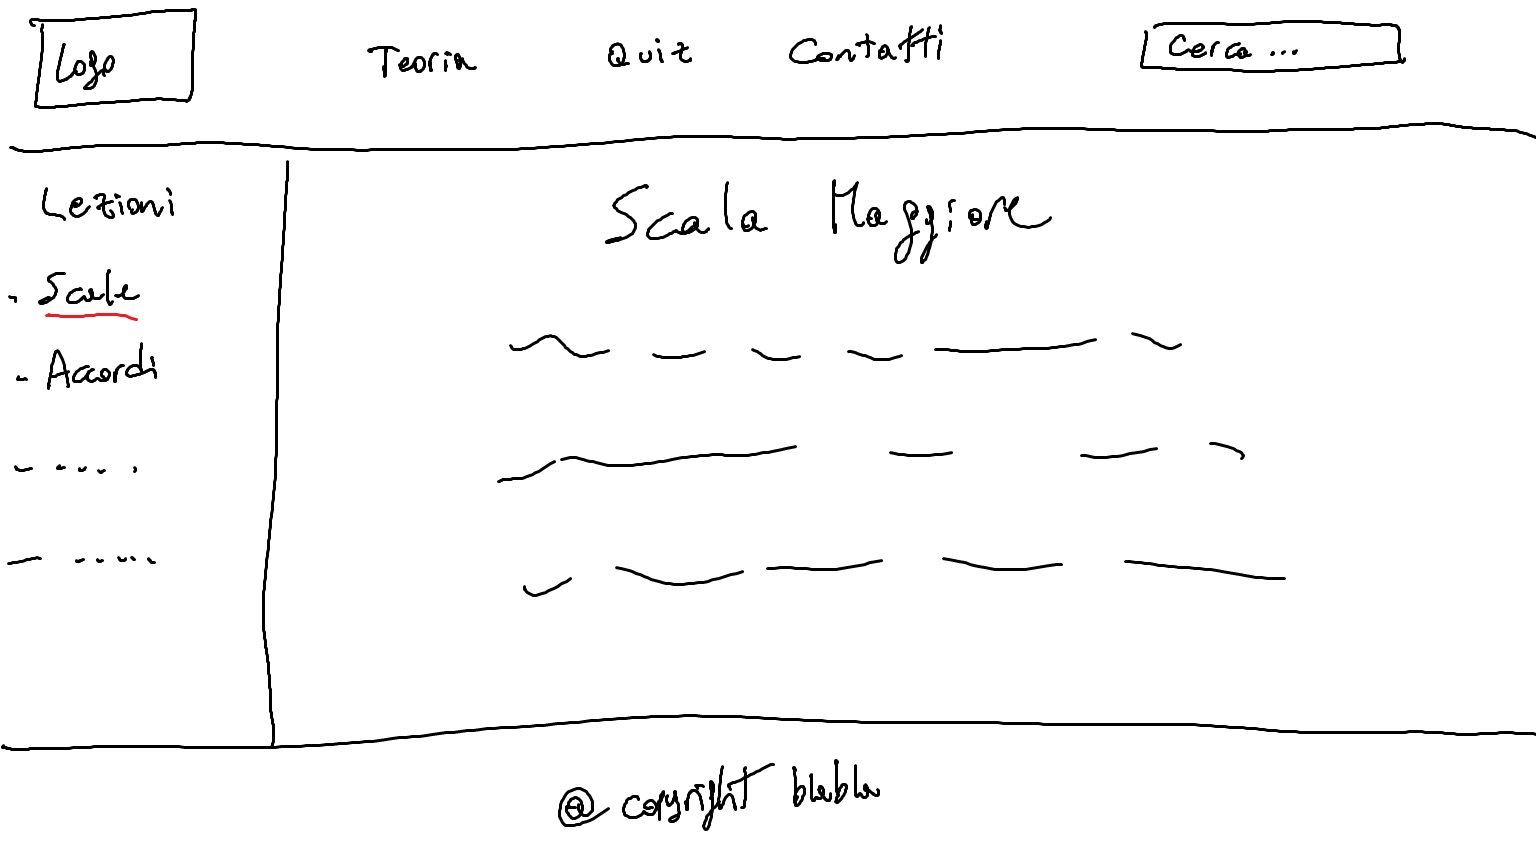 Logo
Teoria
Quiz
Contatti
Cerca ...
Lezioni
- Scale
- Accordi
- ....
- .....
Scala Maggiore
@ copyright blabla